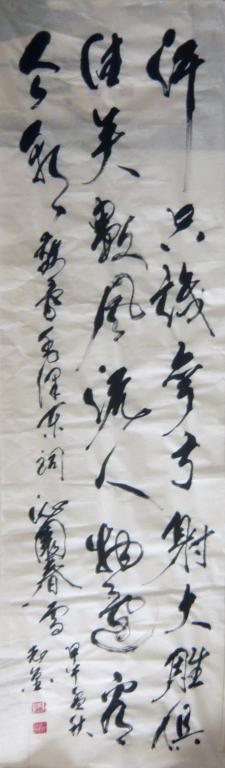 汗只識彎弓射大雕俱
往矣數風流人物還看
今朝 書毛澤東詞 沁園春雪
甲午 秋